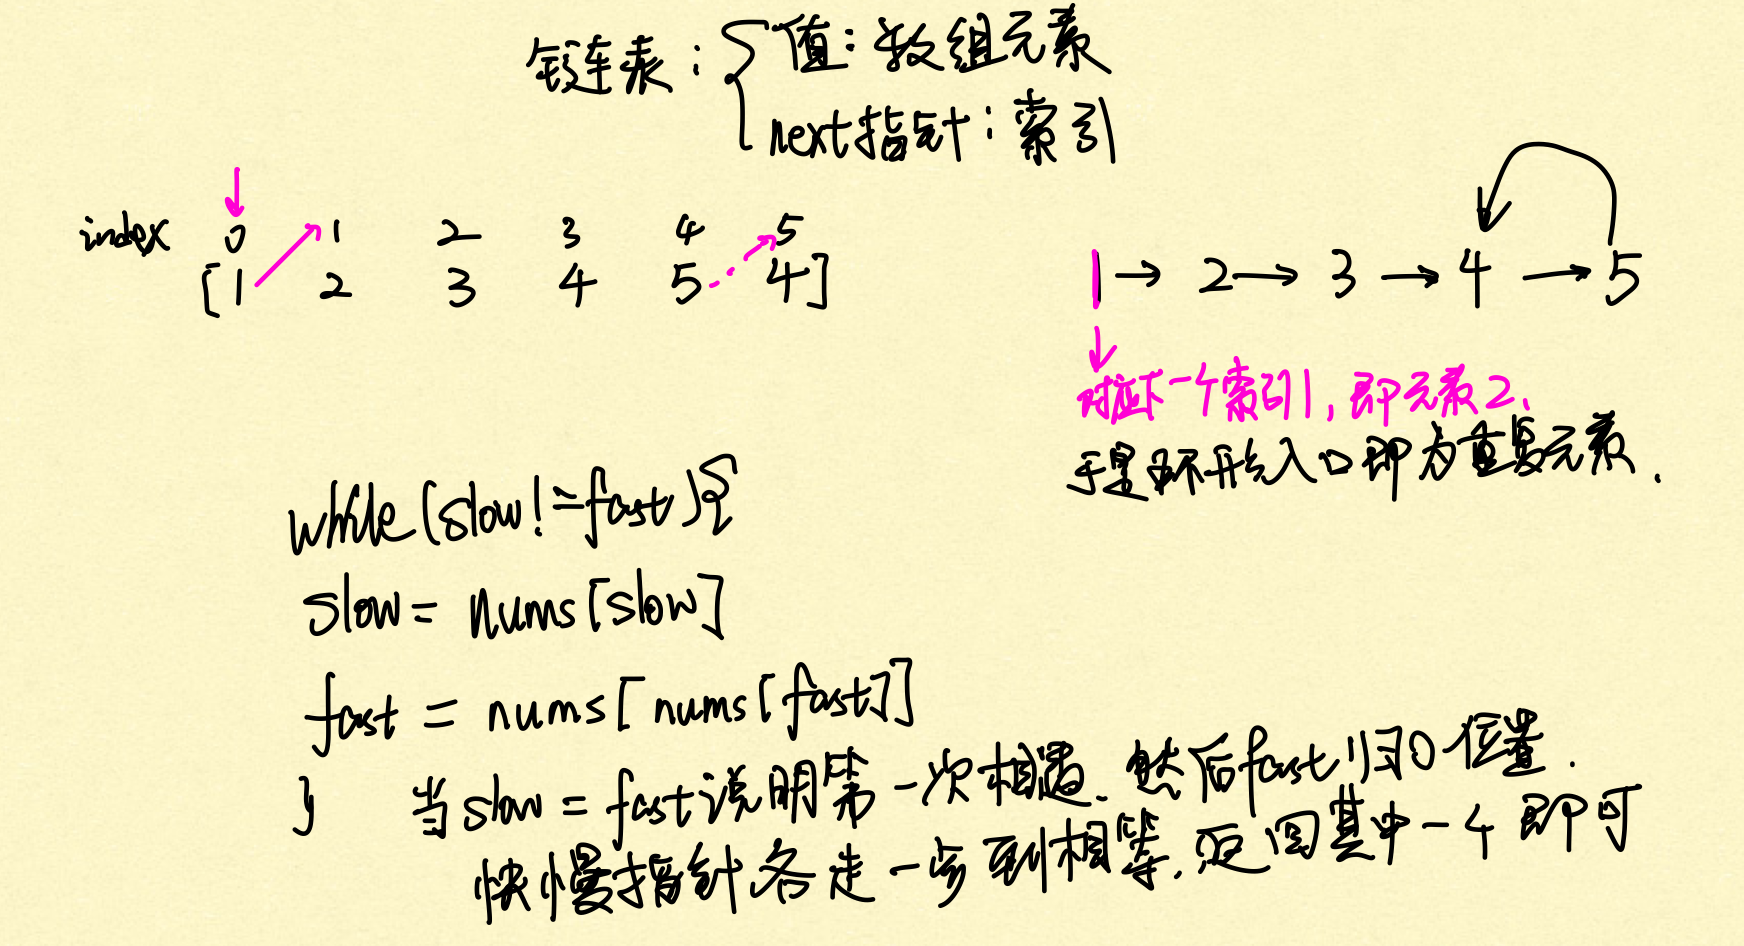 链表：{值：数组元素
next指针：索引
index 0 1 2 3 4 5
[1 2 3 4 5 4]
1→2→3→4→5
对应下一个索引1，即元素2、
于是环形入口即为重复元素.
while(slow!=fast){
slow= nums[slow]
fast = nums[nums[fast]]
} 当slow=fast说明第一次相遇.然后fast归0位置.
快慢指针各走一步到相等.返回其中一个即可